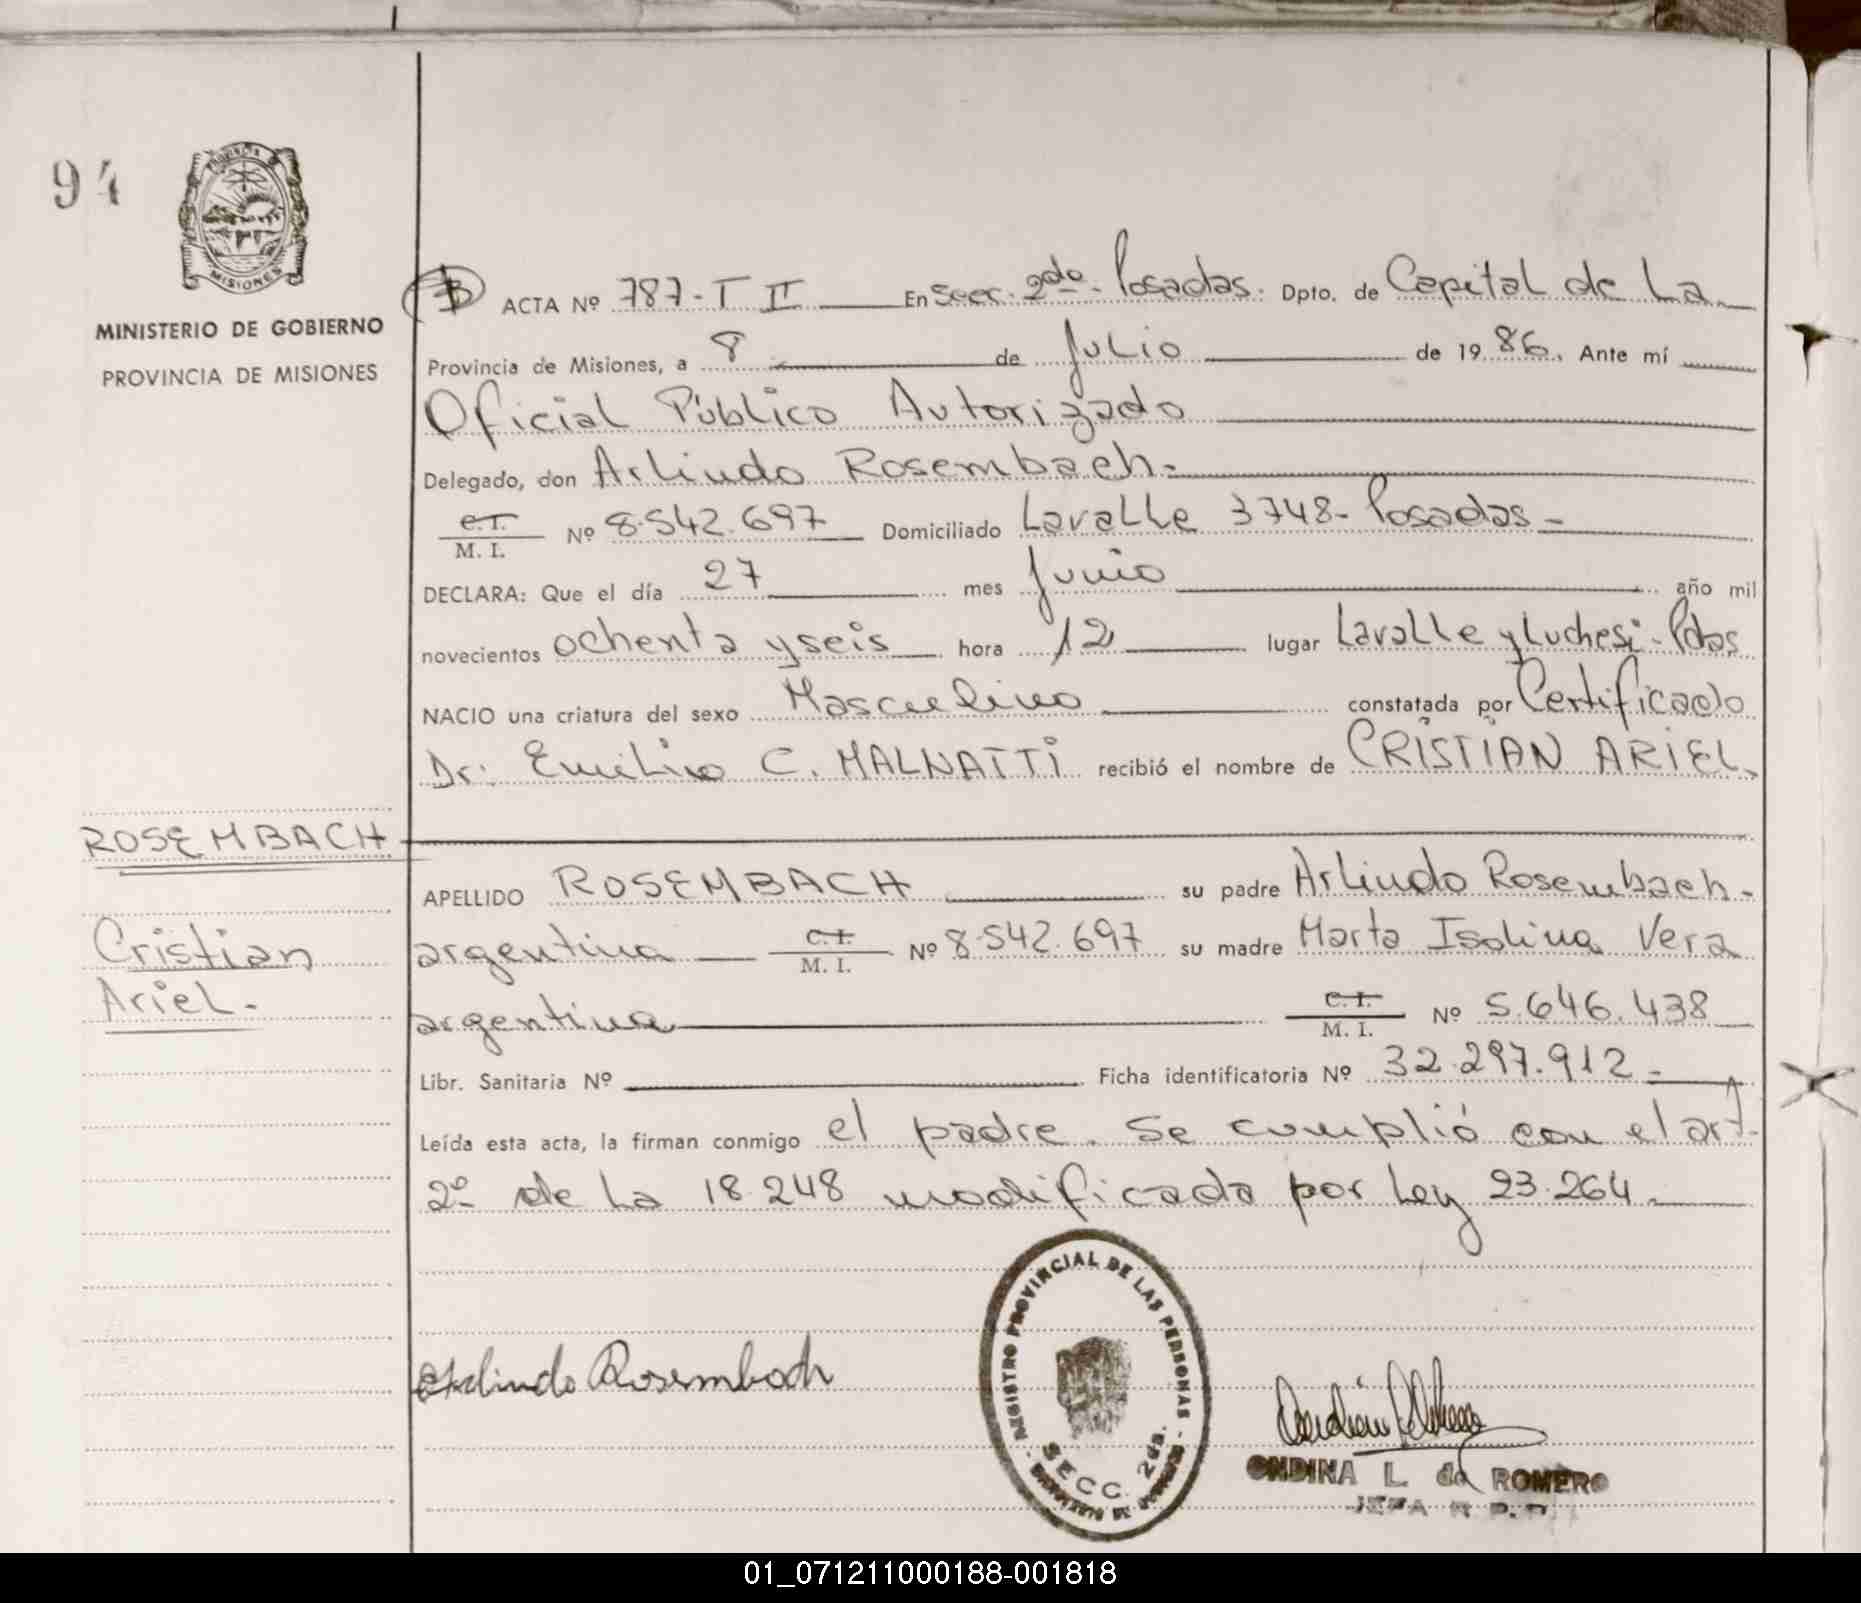 94
PROVINCIA DE
MISIONES
MINISTERIO DE GOBIERNO
PROVINCIA DE MISIONES
ACTA Nº 787-T II En Secc. 2da. Posadas. Dpto. de Capital de La
Provincia de Misiones, a 8 de Julio de 1986. Ante mí
Oficial Público Autorizado
Delegado, don Arlindo Rosembach.
C.I.
M. I. Nº 8.542.697 Domiciliado Lavalle 3748- Posadas-
DECLARA: Que el día 27 mes Junio año mil
novecientos ochenta y seis hora 12 lugar Lavalle y Luchesi- Pdas
NACIO una criatura del sexo Masculino constatada por Certificado
Dr. Emilio C. MALNATTI recibió el nombre de CRISTIAN ARIEL.
ROSEMBACH
APELLIDO ROSEMBACH su padre Arlindo Rosembach-
Cristian
Ariel.
argentina C.I.
M. I. Nº 8.542.697 su madre Marta Isolina Vera
argentina C.I.
M. I. Nº 5.646.438
Libr. Sanitaria Nº Ficha identificatoria Nº 32.297.912-
Leída esta acta, la firman conmigo el padre. Se cumplió con el art.
2º de la 18.248 modificada por Ley 23.264.
Arlindo Rosembach
REGISTRO PROVINCIAL DE LAS PERSONAS
SECC. 2da.
ONDINA L. de ROMERO
JEFA R.P.P.
01_071211000188-001818